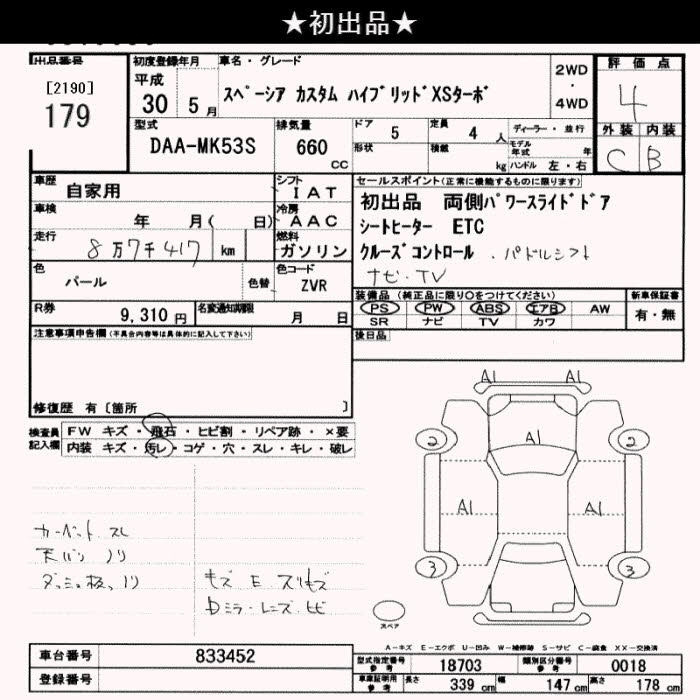 ★初出品★
出品番号
[2190]
179
初度登録年月
平成
30 5 月
車名・グレード
スペーシア カスタム ハイブリッドXSターボ
2WD
・
4WD
評価点
4
外装 内装
C B
型式
DAA-MK53S
排気量
660
cc
ドア 5
定員 4 人
形状
積載 kg
ディーラー・並行
モデル年式 年
ハンドル 左・右
車歴
自家用
シフト
IAT
車検
年 月( 日)
冷房
AAC
走行
8万7千417 km
燃料
ガソリン
色
パール
色替
色コード
ZVR
R券
9,310 円
名変通知期限
月 日
セールスポイント(正常に機能するものに限ります)
初出品 両側パワースライドドア
シートヒーター ETC
クルーズコントロール ・パドルシフト
ナビ・TV
装備品 (純正品に限り○をつけてください)
PS PW ABS エアB AW
SR ナビ TV カワ
新車保証書
有・無
後日品
注意事項申告欄(不具合内容等は具体的に記入して下さい)
修復歴 有〔箇所 〕
検査員
記入欄
FW キズ・飛石・ヒビ割・リペア跡・×要
内装 キズ・汚レ・コゲ・穴・スレ・キレ・破レ
カーペット スレ
天バリ ノリ
ダッシュ板っノリ
キズ E スリキズ
Dミラーレンズ ヒビ
A1 A1
2 A1 2
A1 A1
3 3
スペア
A-キズ E-エクボ U-凹み W-補修跡 S-サビ C-腐食 XX-交換済
車台番号 833452
登録番号
型式指定番号
参考
18703
類別区分番号
参考
0018
車庫証明用
参考
長さ 339 cm 幅 147 cm 高さ 178 cm